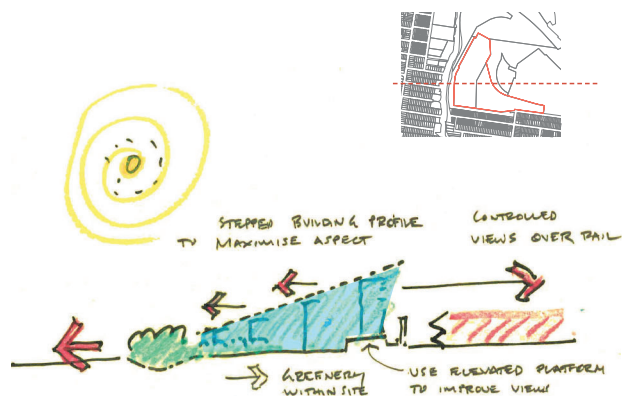 STEPPED BUILDING PROFILE
TO MAXIMISE ASPECT
CONTROLLED
VIEWS OVER RAIL
GREENERY
WITHIN SITE
USE ELEVATED PLATFORM
TO IMPROVE VIEWS